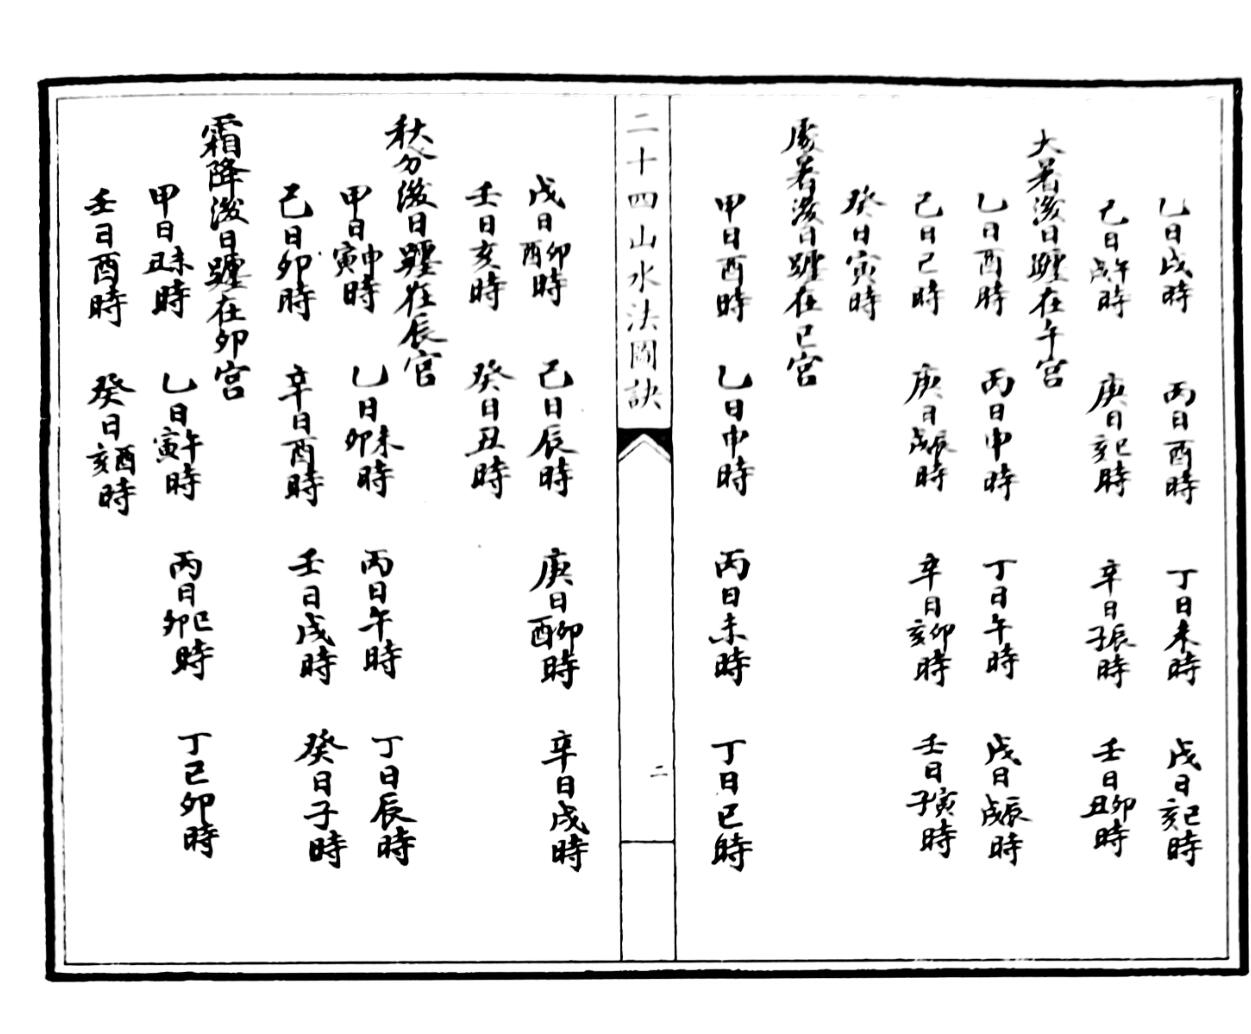 乙日戌時　丙日酉時　丁日未時　戊日巳亥時
己日午戌時　庚日巳亥時　辛日辰子時　壬日卯丑時
大暑後日躔在午宮
乙日酉時　丙日申時　丁日午時　戊日辰戌時
己日巳時　庚日辰戌時　辛日卯亥時　壬日寅子時
癸日寅時
處暑後日躔在巳宮
甲日酉時　乙日申時　丙日未時　丁日巳時
二十四山水法圖訣
二
戊日卯酉時　己日辰時　庚日卯酉時　辛日戌時
壬日亥時　癸日丑時
秋分後日躔在辰宮
甲日申寅時　乙日未卯時　丙日午時　丁日辰時
己日卯時　辛日酉時　壬日戌時　癸日子時
霜降後日躔在卯宮
甲日未丑時　乙日午寅時　丙日巳卯時　丁巳卯時
壬日酉時　癸日酉亥時